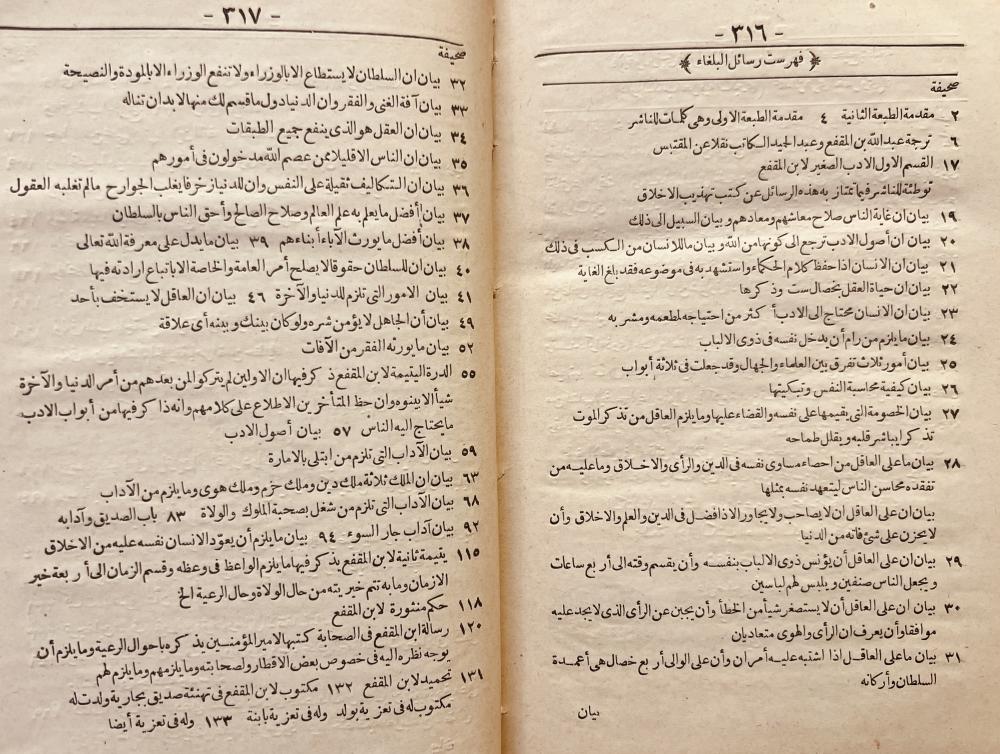 - ٣١٦ -
﴿ فهرست رسائل البلغاء ﴾
صحيفة
٢ مقدمة الطبعة الثانية ٤ مقدمة الطبعة الاولى وهى كلمات للناشر
٦ ترجمة عبد الله بن المقفع وعبد الحميد الكاتب نقلا عن المقتبس
١٧ القسم الاول الادب الصغير لابن المقفع
توطئة للناشر فيما تمتاز به هذه الرسائل عن كتب تهذيب الاخلاق
١٩ بيان ان غاية الناس صلاح معاشهم ومعادهم وبيان السبيل الى ذلك
٢٠ بيان ان أصول الادب ترجع الى كونها من الله وبيان ما للانسان من الكسب فى ذلك
٢١ بيان ان الانسان اذا حفظ كلام الحكماء واستشهد به فى موضوعه فقد بلغ الغاية
٢٢ بيان ان حياة العقل بخصال ست وذكرها
٢٣ بيان ان الانسان محتاج الى الادب أكثر من احتياجه لمطعمه ومشربه
٢٤ بيان ما يلزم من رام أن يدخل نفسه فى ذوى الالباب
٢٥ بيان أمور ثلاث تفرق بين العلماء والجهال وقد جعلت فى ثلاثة أبواب
٢٦ بيان كيفية محاسبة النفس وتبكيتها
٢٧ بيان الخصومة التى يقيمها على نفسه والقضاء عليها وما يلزم العاقل من تذكر الموت
تذكرا يباشر قلبه ويقلل طماحه
٢٨ بيان ما على العاقل من احصاء مساوى نفسه فى الدين والرأى والاخلاق وما عليه من
تفقده محاسن الناس ليتعهد نفسه بمثلها
بيان ان على العاقل ان لا يصاحب ولا يجاور الا ذا فضل فى الدين والعلم والاخلاق وأن
لا يحزن على شئ فاته من الدنيا
٢٩ بيان ان على العاقل أن يؤنس ذوى الالباب بنفسه وأن يقسم وقته الى أربع ساعات
ويجعل الناس صنفين ويلبس لهم لباسين
٣٠ بيان ان على العاقل أن لا يستصغر شيأ من الخطأ وأن يجبن عن الرأى الذى لا يجد عليه
موافقا وأن يعرف ان الرأى والهوى متعاديان
٣١ بيان ما على العاقل اذا اشتبه عليه أمران وأن على الوالى أربع خصال هى أعمدة
السلطان وأركانه
بيان
- ٣١٧ -
صحيفة
٣٢ بيان ان السلطان لا يستطاع الا بالوزراء ولا تنفع الوزراء الا بالمودة والنصيحة
٣٣ بيان آفة الغنى والفقر وان الدنيا دول ما قسم لك منها لا بد ان تناله
٣٤ بيان ان العقل هو الذى ينفع جميع الطبقات
٣٥ بيان ان الناس الا قليلا ممن عصم الله مدخولون فى أمورهم
٣٦ بيان ان التكاليف ثقيلة على النفس وان للدنيا زخرفا يغلب الجوارح ما لم تغلبه العقول
٣٧ بيان أفضل ما يعلم به علم العالم وصلاح الصالح وأحق الناس بالسلطان
٣٨ بيان أفضل ما يورث الآباء أبناءهم ٣٩ بيان ما يدل على معرفة الله تعالى
٤٠ بيان ان للسلطان حقوقا لا يصلح أمر العامة والخاصة الا باتباع ارادته فيها
٤١ بيان الامور التى تلزم للدنيا والآخرة ٤٦ بيان ان العاقل لا يستخف بأحد
٤٩ بيان أن الجاهل لا يؤمن شره ولو كان بينك وبينه أى علاقة
٥٢ بيان ما يورثه الفقر من الآفات
٥٥ الدرة اليتيمة لابن المقفع ذكر فيها ان الاولين لم يتركوا لمن بعدهم من أمر الدنيا والآخرة
شيأ الا بينوه وان حظ المتأخرين الاطلاع على كلامهم وانه ذاكر فيها من أبواب الادب
ما يحتاج اليه الناس ٥٧ بيان أصول الادب
٥٩ بيان الآداب التى تلزم من ابتلى بالامارة
٦٣ بيان ان الملك ثلاثة ملك دين وملك حزم وملك هوى وما يلزم من الآداب
٦٨ بيان الآداب التى تلزم من شغل بصحبة الملوك والولاة ٨٣ باب الصديق وآدابه
٩٢ بيان آداب جار السوء ٩٤ بيان ما يلزم أن يعود الانسان نفسه عليه من الاخلاق
١١٥ يتيمة ثانية لابن المقفع يذكر فيها ما يلزم الواعظ فى وعظه وقسم الزمان الى أربعة خير
الازمان وما به تتم خيريته من حال الولاة وحال الرعية الخ
١١٨ حكم منثورة لابن المقفع
١٢٠ رسالة ابن المقفع فى الصحابة كتبها لامير المؤمنين يذكره باحوال الرعية وما يلزم أن
يوجه نظره اليه فى خصوص بعض الاقطار ولصحابته وما يلزمهم وما يلزم لهم
١٣١ تحميد لابن المقفع ١٣٢ مكتوب لابن المقفع فى تهنئة صديق بجارية ولدت له
مكتوب له فى تعزية بولد وله فى تعزية بابنة ١٣٣ وله فى تعزية أيضا